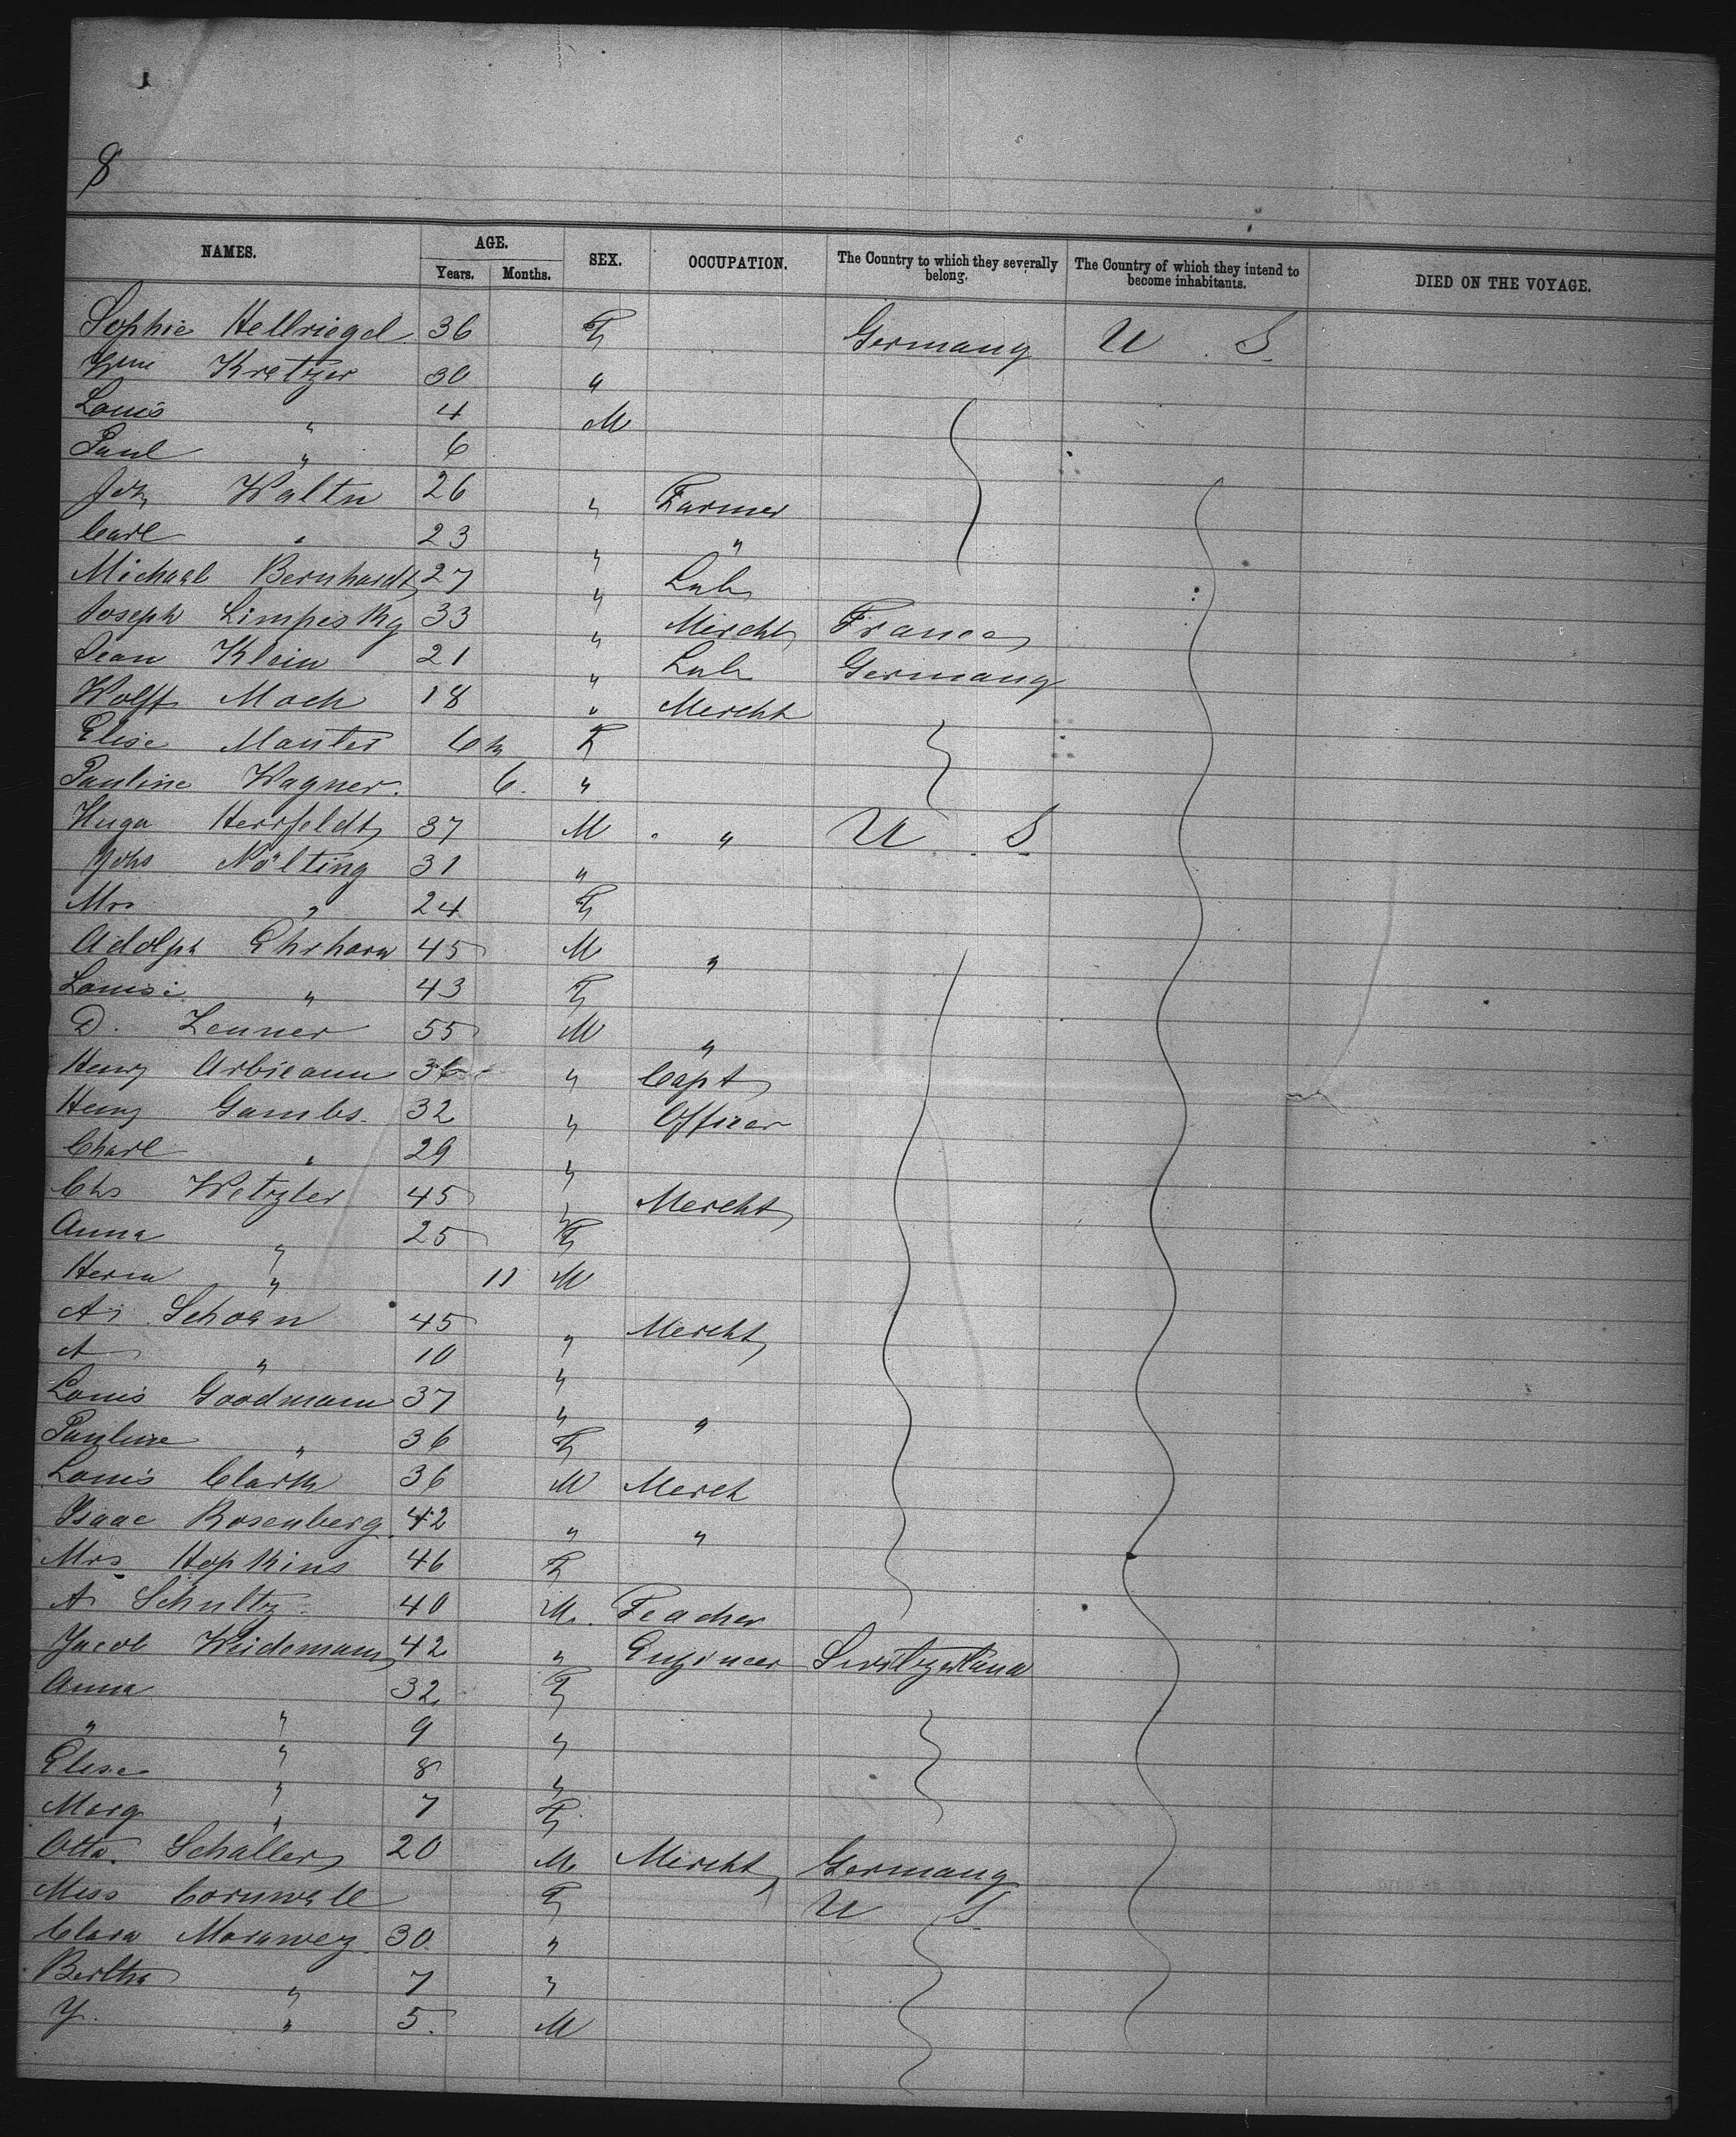 8
NAMES. AGE. SEX. OCCUPATION. The Country to which they severally belong. The Country of which they intend to become inhabitants. DIED ON THE VOYAGE.
Years. Months.
Sophie Hellriegel 36 F Germany U S
Kretzer 30 "
Louis " 4 M
Paul " 6
Joh Walter 26 " Farmer
Carl " 23 " "
Michael Bernhardt 27 " Lab
Joseph Limpisky 33 " Mercht France
Jean Klein 21 " Lab Germany
Wolff Moch 18 " Mercht
Elise Manter 6 m F
Pauline Wagner. 6. "
Hugo Herrfeldt 37 M " U S
Johs Nölting 31 "
Mrs " 24 F
Adolph Ehrhorn 45 M "
Louise " 43 F
D. Zenner 55 M "
Henry 36 " Capt
Henry Gambs. 32 " Officer
Charl " 29 "
Chs Wetzler 45 " Mercht
Anna " 25 F
Herm " 11 M
A. Schoen 45 " Mercht
A " 10 "
Louis Goodmann 37 " "
Pauline " 36 F
Louis Clark 36 M Merch
Isaac Rosenberg 42 " "
Mrs Hopkins 46 F
A. Schultz. 40 M. Teacher
Jacob Weidemann 42 " Engineer Switzerland
Anna " 32 F
" " 9 "
Elise " 8 "
Marg " 7 F.
Otto. Schaller 20 M Mercht Germany
Miss Cornwell F U S
Clara Morawez 30. "
Bertha " 7 "
Y. " 5. M